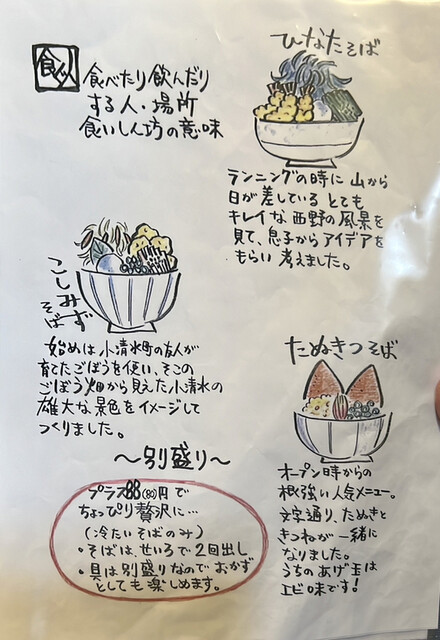 食べたり飲んだり
する人・場所
食いしん坊の意味
ひなたそば
ランニングの時に山から
日が差している とても
キレイな 西野の風景を
見て、息子からアイデアを
もらい 考えました。
こしみず
そば
始めは小清水町の友人が
育てたごぼうを使い、そこの
ごぼう畑から見えた小清水の
雄大な景色をイメージして
つくりました。
たぬきつそば
オープン時からの
根強い人気メニュー。
文字通り、たぬきと
きつねが一緒に
なりました。
うちのあげ玉は
エビ味です!
〜別盛り〜
プラス88(80)円で
ちょっぴり贅沢に…
(冷たいそばのみ)
・そばは、せいろで2回出し
・具は別盛りなので おかず
としても楽しめます。